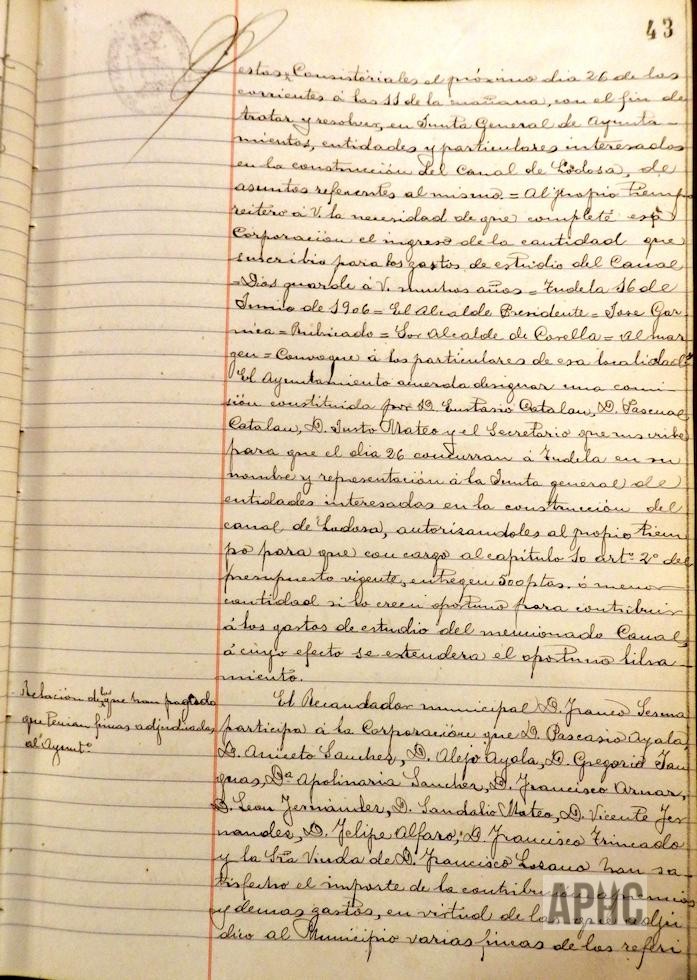 43
estas Consistoriales el próximo dia 26 de los
corrientes á las 11 de la mañana, con el fin de
tratar y resolver, en Junta General de Ayunta-
mientos, entidades y particulares interesados
en la construcción del Canal de Lodosa, de
asuntos referentes al mismo. = Al propio tiempo
reitero á V. la necesidad de que complete esa
Corporación el ingreso de la cantidad que
suscribio para los gastos de estudio del Canal
= Dios guarde á V. muchos años = Tudela 16 de
Junio de 1906 = El Alcalde Presidente = Jose Gar-
nica = Rubicado = Sor Alcalde de Corella = Al mar-
gen = Convoque á los particulares de esa localidad.
El Ayuntamiento acuerda designar una comi
sión constituida por D. Eustasio Catalan, D. Pascual
Catalan, D. Justo Mateo y el Secretario que suscribe
para que el dia 26 concurran á Tudela en su
nombre y representación á la Junta general de
entidades interesadas en la construcción del
canal de Lodosa, autorizandoles al propio tiem
po para que con cargo al capitulo 10 artº 2º del
presupuesto vigente, entreguen 500 ptas. ó menor
cantidad si lo creen oportuno para contribuir
á los gastos de estudio del mencionado Canal,
á cuyo efecto se extendera el oportuno libra-
miento.
Relación de los que han pagado
que tenian fincas adjudicadas
al Ayuntº
El Recaudador municipal D. Franco Sesma
participa á la Corporación que D. Pascasio Ayala,
D. Aniceto Sanchez, D. Alejo Ayala, D. Gregorio San
guas, Dª Apolinaria Sanchez, D. Francisco Arnar,
D. Leon Fernandez, D. Sandalio Mateo, D. Vicente Fer
nandez, D. Felipe Alfaro, D. Francisco Trincado
y la Sra Viuda de D. Francisco Lozano han sa-
tisfecho el importe de la contribución apremios
y demas gastos, en virtud de los que se adju
dico al Municipio varias fincas de los referi
APHC